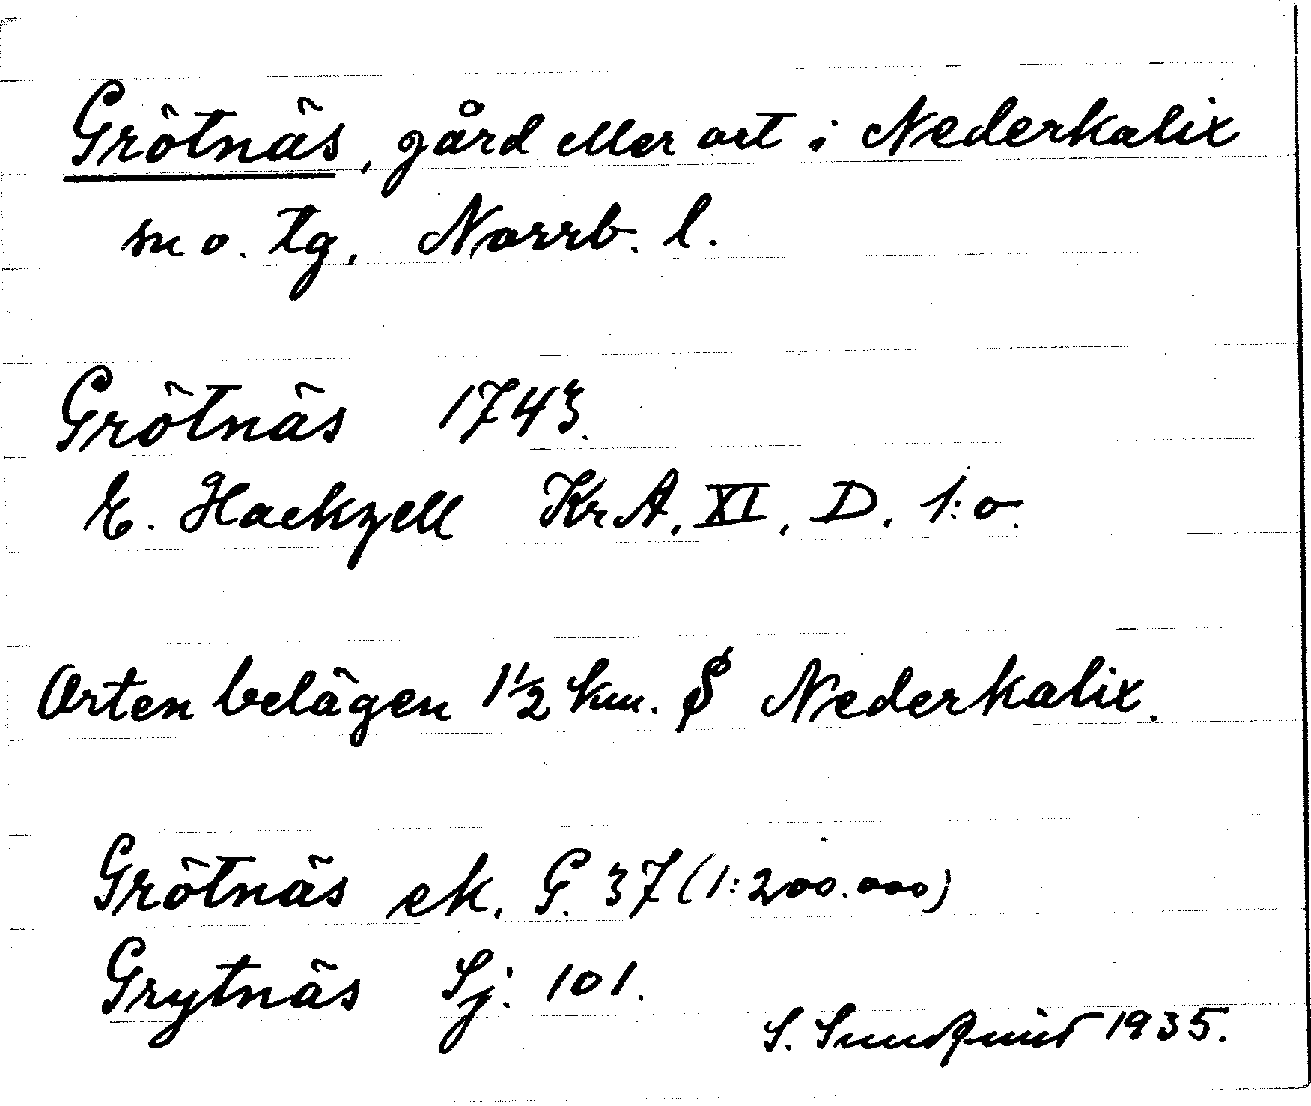 Grötnäs, gård eller ort i Nederkalix
sn o. tg, Norrb. l.
Grötnäs 1743.
E. Hackzell Kr A. XI. D. 1:o.
Orten belägen 1½ km. S Nederkalix.
Grötnäs ek. G. 37 (1:200.000)
Grytnäs Sj. 101.
S. Sundquist 1935.